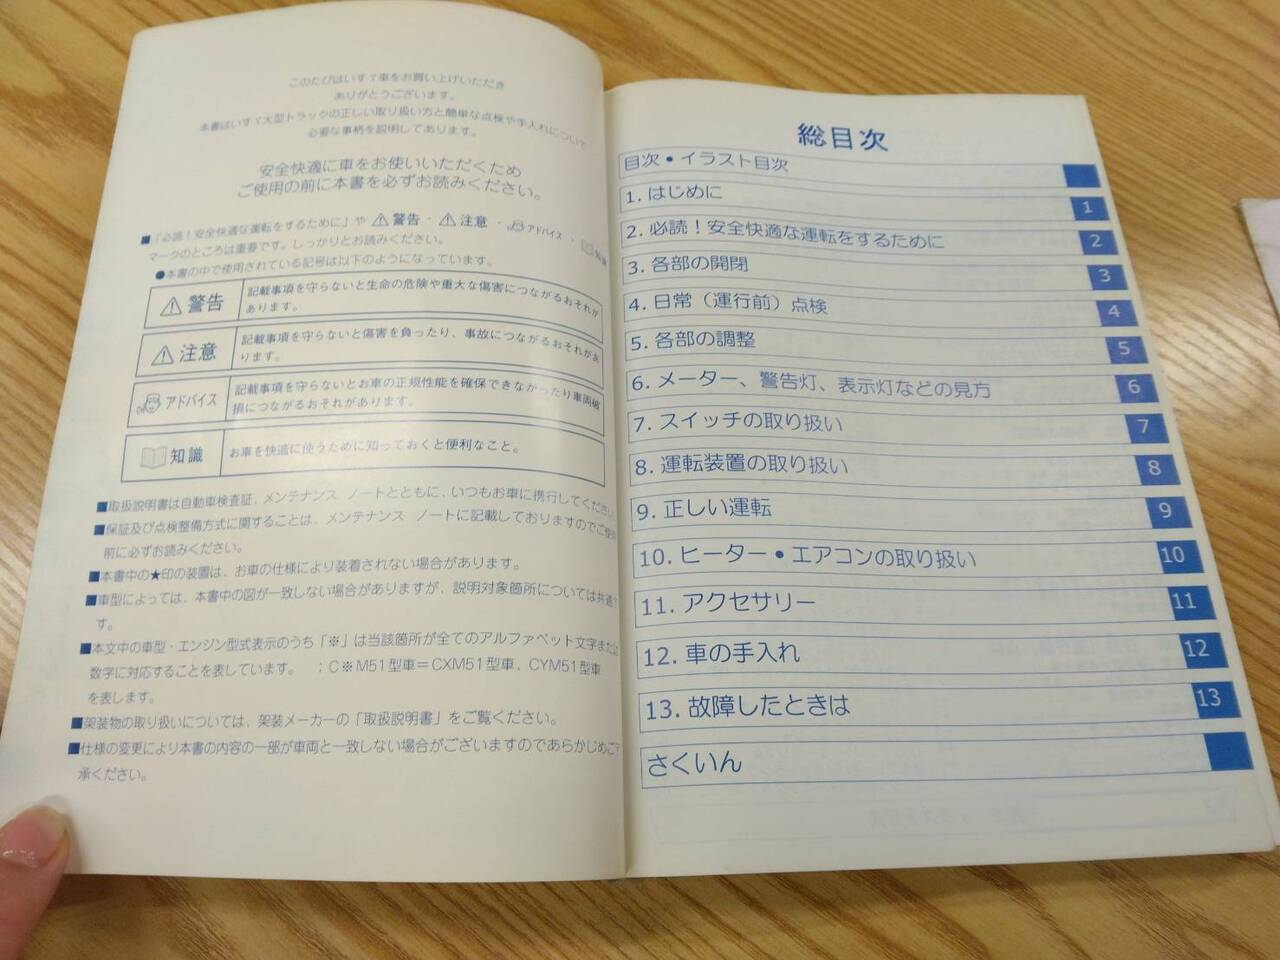 このたびはいすゞ車をお買い上げいただき
ありがとうございます。
本書はいすゞ大型トラックの正しい取り扱い方と簡単な点検や手入れについて
必要な事柄を説明してあります。
安全快適に車をお使いいただくため
ご使用の前に本書を必ずお読みください。
■「必読！安全快適な運転をするために」や ⚠警告・⚠注意・アドバイス・知識
マークのところは重要です。しっかりとお読みください。
●本書の中で使用されている記号は以下のようになっています。
⚠警告 記載事項を守らないと生命の危険や重大な傷害につながるおそれが
あります。
⚠注意 記載事項を守らないと傷害を負ったり、事故につながるおそれがあ
ります。
アドバイス 記載事項を守らないとお車の正規性能を確保できなかったり車両破
損につながるおそれがあります。
知識 お車を快適に使うために知っておくと便利なこと。
■取扱説明書は自動車検査証、メンテナンス ノートとともに、いつもお車に携行してくださ
■保証及び点検整備方式に関することは、メンテナンス ノートに記載しておりますのでご使用
前に必ずお読みください。
■本書中の★印の装置は、お車の仕様により装着されない場合があります。
■車型によっては、本書中の図が一致しない場合がありますが、説明対象箇所については共通で
す。
■本文中の車型・エンジン型式表示のうち「※」は当該箇所が全てのアルファベット文字または
数字に対応することを表しています。 ：C※M51型車＝CXM51型車、CYM51型車
を表します。
■架装物の取り扱いについては、架装メーカーの「取扱説明書」をご覧ください。
■仕様の変更により本書の内容の一部が車両と一致しない場合がございますのであらかじめご了
承ください。
総目次
目次・イラスト目次
1. はじめに 1
2. 必読！安全快適な運転をするために 2
3. 各部の開閉 3
4. 日常（運行前）点検 4
5. 各部の調整 5
6. メーター、警告灯、表示灯などの見方 6
7. スイッチの取り扱い 7
8. 運転装置の取り扱い 8
9. 正しい運転 9
10. ヒーター・エアコンの取り扱い 10
11. アクセサリー 11
12. 車の手入れ 12
13. 故障したときは 13
さくいん